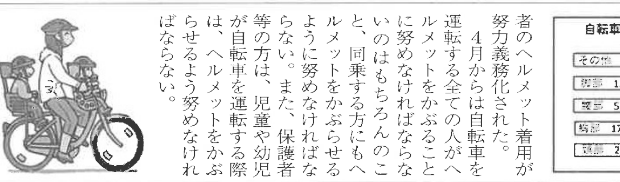 者のヘルメット着用が
努力義務化された。
　４月からは自転車を
運転する全ての人がヘ
ルメットをかぶること
に努めなければならな
いのはもちろんのこ
と、同乗する方にもヘ
ルメットをかぶらせる
ように努めなければな
らない。また、保護者
等の方は、児童や幼児
が自転車を運転する際
は、ヘルメットをかぶ
らせるよう努めなけれ
ばならない。
自転車
その他